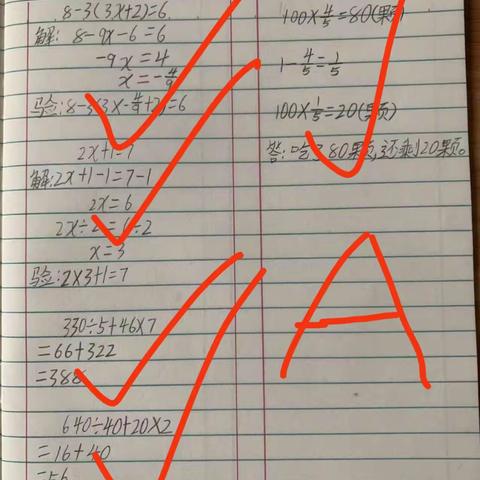 8-3(3x+2)=6
解: 8-9x-6=6
-9x=4
x=-4/9
验:8-3(3×-4/9+2)=6
2x+1=7
解:2x+1-1=7-1
2x=6
2x÷2=6÷2
x=3
验:2×3+1=7
330÷5+46×7
=66+322
=388
640÷40+20×2
=16+40
=56
100×4/5=80(颗)
1-4/5=1/5
100×1/5=20(颗)
答:吃了80颗,还剩20颗。
A